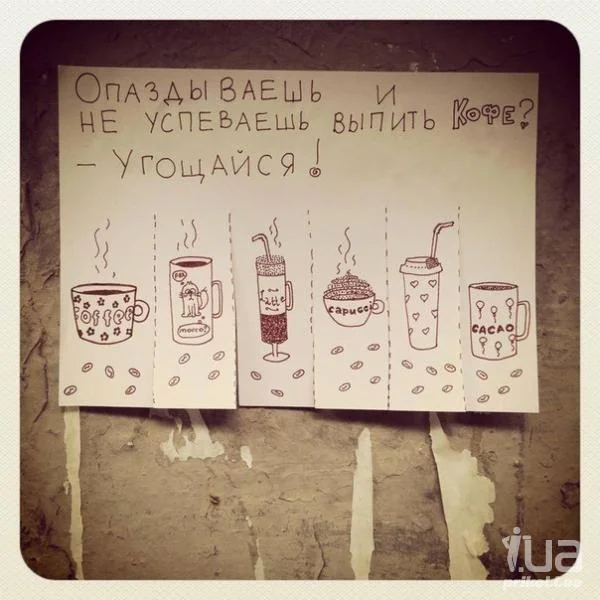 Опаздываешь и
не успеваешь выпить кофе?
– Угощайся!
COFFEE
FOR
morro?
Latte
capucci
CACAO
i.UA
prikol.i.ua